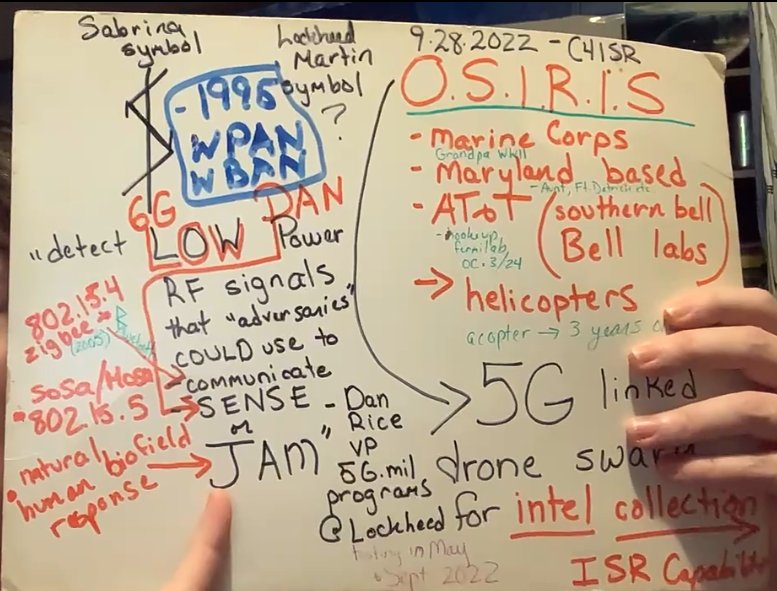 Sabrina
symbol
Lockheed
Martin
symbol
?
- 1995
WPAN
WBAN
6G
DAN
"detect LOW Power
RF signals
that "adversaries"
COULD use to
- communicate
- SENSE
or
JAM"
- Dan
Rice
VP
5G.mil
programs
@Lockheed
testing in May
Sept 2022
802.15.4
zigbee
(2005)
SoSa/Mosa
802.15.5
natural
human biofield
response
9.28.2022 - C4ISR
O.S.I.R.I.S
- Marine Corps
Grandpa WWII
- Maryland based
- Aunt, Ft. Detrick etc
- AT&T (southern bell
Bell labs)
- hookup,
fermilab,
OC. 3/24
→ helicopters
acopter → 3 years
5G linked
drone swarm
for intel collection
ISR